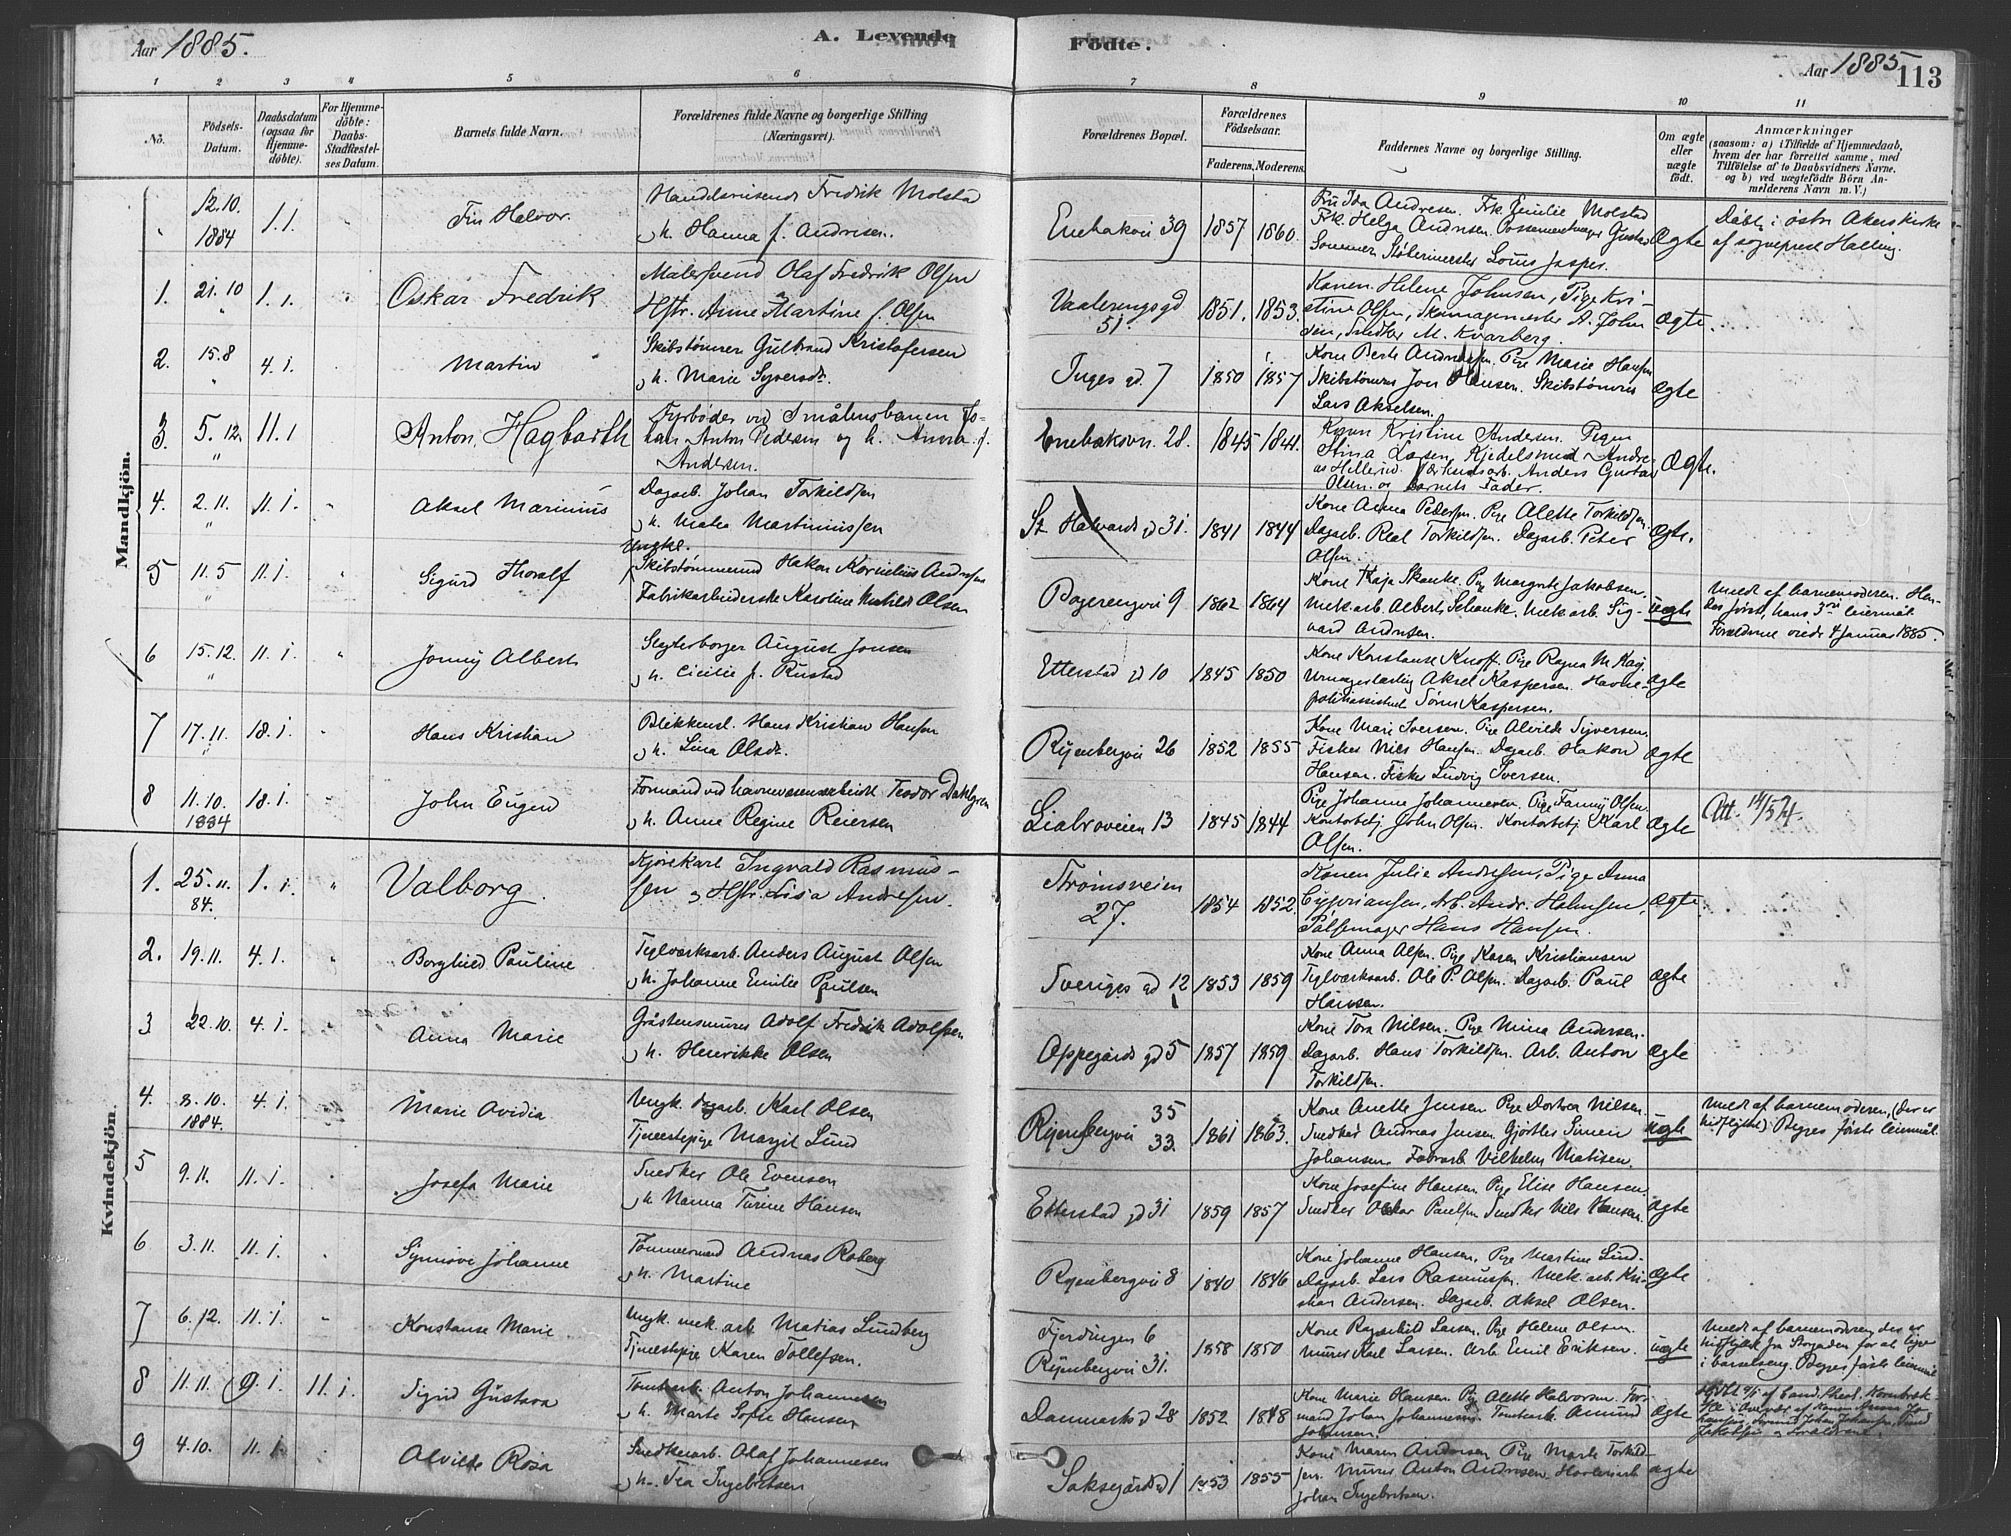 Aar 1885.
A. Levende
Fødte.
Aar 1885
113
1 2 3 4 5 6 7 8 9 10 11
No.
Fødsels-
Datum.
Daabsdatum
(ogsaa for
Hjemme-
døbte).
For Hjemme-
døbte:
Daabs-
Stadfæstel-
ses Datum.
Barnets fulde Navn.
Forældrenes fulde Navne og borgerlige Stilling
(Næringsvei).
Forældrenes Bopæl.
Forældrenes
Fødselsaar.
Faderens. Moderens.
Faddernes Navne og borgerlige Stilling.
Om ægte
eller
uægte
født.
Anmærkninger
(saasom: a) i Tilfælde af Hjemmedaab,
hvem der har forrettet samme, med
Tilføielse af to Daabsvidners Navne.
og b) ved uægtefødte Børn An-
melderens Navn m. V.)
Mandkjön.
12.10. 1884 1.1. Fin Halvor.
Handelsreisende Fredrik Molstad
og h. Hanna f. Andresen.
Enebakvei 39 1857 1860.
Fru Ida Andresen. Frk. Emilie Molstad
Frk. Helga Andresen. Possementmager Gustav
Sonemer Støbermester Louis Jasper.
Ægte
Døbt i østre Akers kirke
af sognepræst Halling.
1. 21.10 1.1. Oskar Fredrik
Malersvend Olaf Fredrik Olsen
Hstr. Anne Martine f. Olsen
Vaalerengsgd 51. 1851. 1853.
Konen Helene Johnsen, Pige Kri-
stine Olsen, Skomagermester A. John
sen, Snedker M. Kvarberg.
Ægte.
2. 15.8 4.1. Martin
Skibstømrer Gulbrand Kristofersen
og h. Marie Syversdr.
Inges gd. 7 1850 1857
Kone Berte Andersen. Pige Marie Hansen
Skibstømrer Jon Hansen. Skibstømrer
Lars Akselsen.
Ægte
3. 5.12. 11.1 Anton Hagbarth
Fyrbøder ved Smålensbanen Jo-
han Anton Pedersen og h. Anna f.
Andersen.
Enebakvn. 28. 1845 1841.
Konen Kristine Andersen. Pigen
Anna Larsen, Kjedelsmed Andre-
as Hellerud. Anders Gustav
Olsen og Barnets Fader.
Ægte.
4. 2.11. 11.1. Aksel Marinius
Dagarb. Johan Torkildsen
og h. Mathea Martinussen
St. Halvards gd 31. 1841 1844
Kone Anna Pedersen. Pige Alette Torkildsen.
Dagarb. Real Torkildsen. Dagarb. Peter
Olsen.
Ægte.
5 11.5 11.1. Sigurd Thoralf
Ungkl.
Skibstømmermd Hakon Kornelius Andersen
Fabrikarbeiderske Karoline Mathilde Olsen
Bogerengvei 9 1862 1864
Kone Kaja Skanke. Pige Margrete Jakobsen.
Mek arb. Albert Schanke. Mek arb. Sig-
vard Andersen.
uægte
Meldt af barnemoderen. Hen-
des første, hans 3die leiermål.
Forældrene viede 4 Januar 1885.
6 15.12. 11.1. Jonny Albert
Slagterborger August Jonsen
og h. Cicilie f. Rustad
Etterstad gd 10 1845 1850
Kone Konstanse Knoff. Pige Ragna M. Kasp.
Urmagerlærling Aksel Kaspersen. Havne-
politiassistent Sören Kaspersen.
Ægte
7 17.11. 18.1. Hans Kristian
Blikkensl. Hans Kristian Hansen
og h. Lina Olsdr.
Ryenbergvei 26 1852 1855
Kone Marie Iversen. Pige Alvilde Syversen.
Fisker Nils Hansen. Dagarb. Hakon
Hansen. Fisker Ludvig Iversen.
Ægte
8 11.10. 1884 18.1. John Eugen
Formand ved havnevæsenarbeidet Teodor Dahlgren
og h. Anne Regine Reiersen
Liabroveien 13 1845 1844
Pige Johanne Johannesen. Pige Fanny Olsen.
Kontorbetj John Olsen. Kontorbetj. Karl
Olsen.
Ægte
Att. 14/5 24.
Kvindekjön.
1. 25.11. 84. 1.1. Valborg.
Kjørekarl Ingvald Rasmus-
sen og Hstr. Lisa Andresen.
Strömsveien 27. 1854 1852.
Konen Julie Andresen, Pige Anna
Cyprianssen, Arb. Andr. Holmsen,
Pølsemager Hans Hansen.
Ægte.
2. 19.11. 4.1. Borghild Pauline
Teglværksarb. Anders August Olsen
og h. Johanne Emilie Paulsen
Sveriges gd 12 1853 1859
Kone Anna Olsen. Pige Karen Kristiansen
Teglværksarb. Ole P. Olsen. Dagarb. Paul
Hansen.
Ægte
3 22.10. 4.1. Anna Marie
Gråstensmurer Adolf Fredrik Adolfsen
og h. Henrikke Olsen
Oppegårds gd 5 1857 1859
Kone Tora Nilsen. Pige Mina Andersen.
Dagarb. Hans Torkildsen. Arb. Anton
Torkildsen.
Ægte
4. 8.10. 1884. 4.1. Marie Ovidia
Ungk. dagarb. Karl Olsen
Tjenestepige Margit Lund
Ryenbergvei 35 33. 1861 1863.
Kone Anette Jensen Pige Dortea Nilsen.
Snedker Andreas Jensen. Gjørtler Simen
Johansen. Fabrarb Vilhelm Matisen.
uægte
Meldt af barnemoderen, (der er
hidflyttet) Begges første leiermål.
5 9.11. 11.1. Josefa Marie
Snedker Ole Evensen
og h. Nanna Turine Hansen
Etterstad gd 31 1859 1857
Kone Josefine Hansen. Pige Elise Hansen.
Snedker Oskar Paulsen Snedker Nils Hansen.
Ægte
6 3.11. 11.1. Synnöve Johanne
Tømmermand Andreas Roberg
og h. Martine
Ryenbergvei 8 1840 1846
Kone Johanne Hansen. Pige Martine Lund-
Dagarb. Lars Rasmussen. Mek. arb. Kri-
stian Andersen. Dagarb. Aksel Olsen.
Ægte
7 6.12. 11.1. Konstanse Marie
Ungk. mek. arb. Matias Lundberg
Tjenestepige Karen Tollefsen.
Fjerdingen 6
Ryenbergvei 31. 1858 1850
Kone Ragnhild Larsen. Pige Helene Olsen.
Murer Karl Larsen. Arb. Emil Eriksen.
uægte
Meldt af barnemoderen der er
hidflyttet fra Storgaden for at ligge
i barselseng. Begges første leiermål
8 11.11. 9.1. 11.1. Sigrid Gustava
Tomtearb. Anton Johannesen
og h. Marte Sofie Hansen
Danmarks gd 28 1852 1848
Kone Marie Hansen. Pige Alette Halvorsen. For-
mand Johan Johannesen. Tomtearb. Amund
Johansen.
Ægte
9 4.10. 11.1. Alvilde Rosa
Snedkerarb. Olaf Johannesen
og h. Tea Ingebretsen
Saksegårdsgd 1 1853 1855
Kone Maren Andersen Pige Marte Torkild-
sen. Murer Anton Andersen. Høvleriarb
Johan Ingebretsen.
Ægte